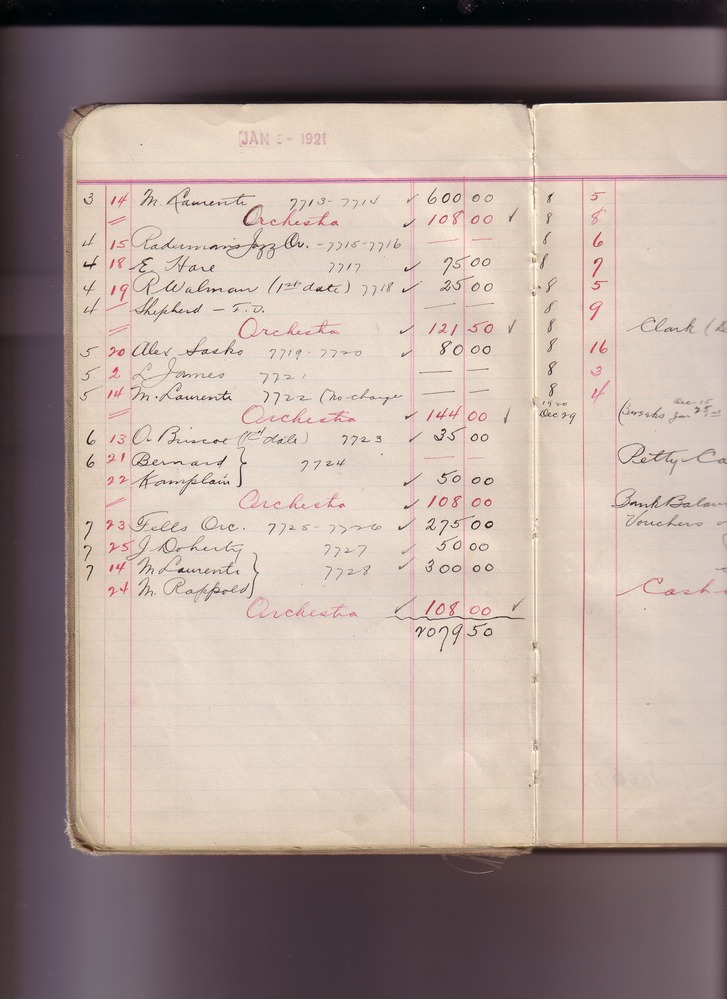 JAN 3- 1921
3 14 M. Laurenti 7713-7714 ✓ 600 00
" Orchestra ✓ 108 00 ✓
4 15 Raderman's Jazz Or. - 7715-7716 — —
4 18 E. Hare 7717 ✓ 75 00
4 19 R Walman (1st date) 7718 ✓ 25 00
4 — Shepherd - T.O. — —
" Orchestra ✓ 121 50 ✓
5 20 Alex Sasko 7719-7720 ✓ 80 00
5 2 L James 7721 — —
5 14 M. Laurenti 7722 (No charge — —
" Orchestra ✓ 144 00 ✓
6 13 O. Briscoe (1st date) 7723 ✓ 35 00
6 21 Bernard } 7724 — —
22 Kamplain } ✓ 50 00
" Orchestra ✓ 108 00
7 23 Fells Orc. 7725-7726 ✓ 275 00
7 25 J Doherty 7727 ✓ 50 00
7 14 M Laurenti } 7728 ✓ 300 00
24 M. Rappold }
Orchestra ✓ 108 00 ✓
2079 50
8 5
8 8
8 6
8 7
8 5
8 9
8 Clark (
8 16
8 3
8 4
1920
Dec 29
Petty Ca
Bank Balan
Vouchers o
Cash